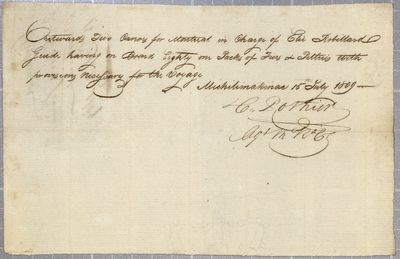 Outwards Two Canoes for Montreal in Charge of Eloi Robillard
Guide having on Board Eighty on Packs of Furs & Peltries with
provisions Necessary for the Voyage
Michilimakinac 15 July 1809
Agt